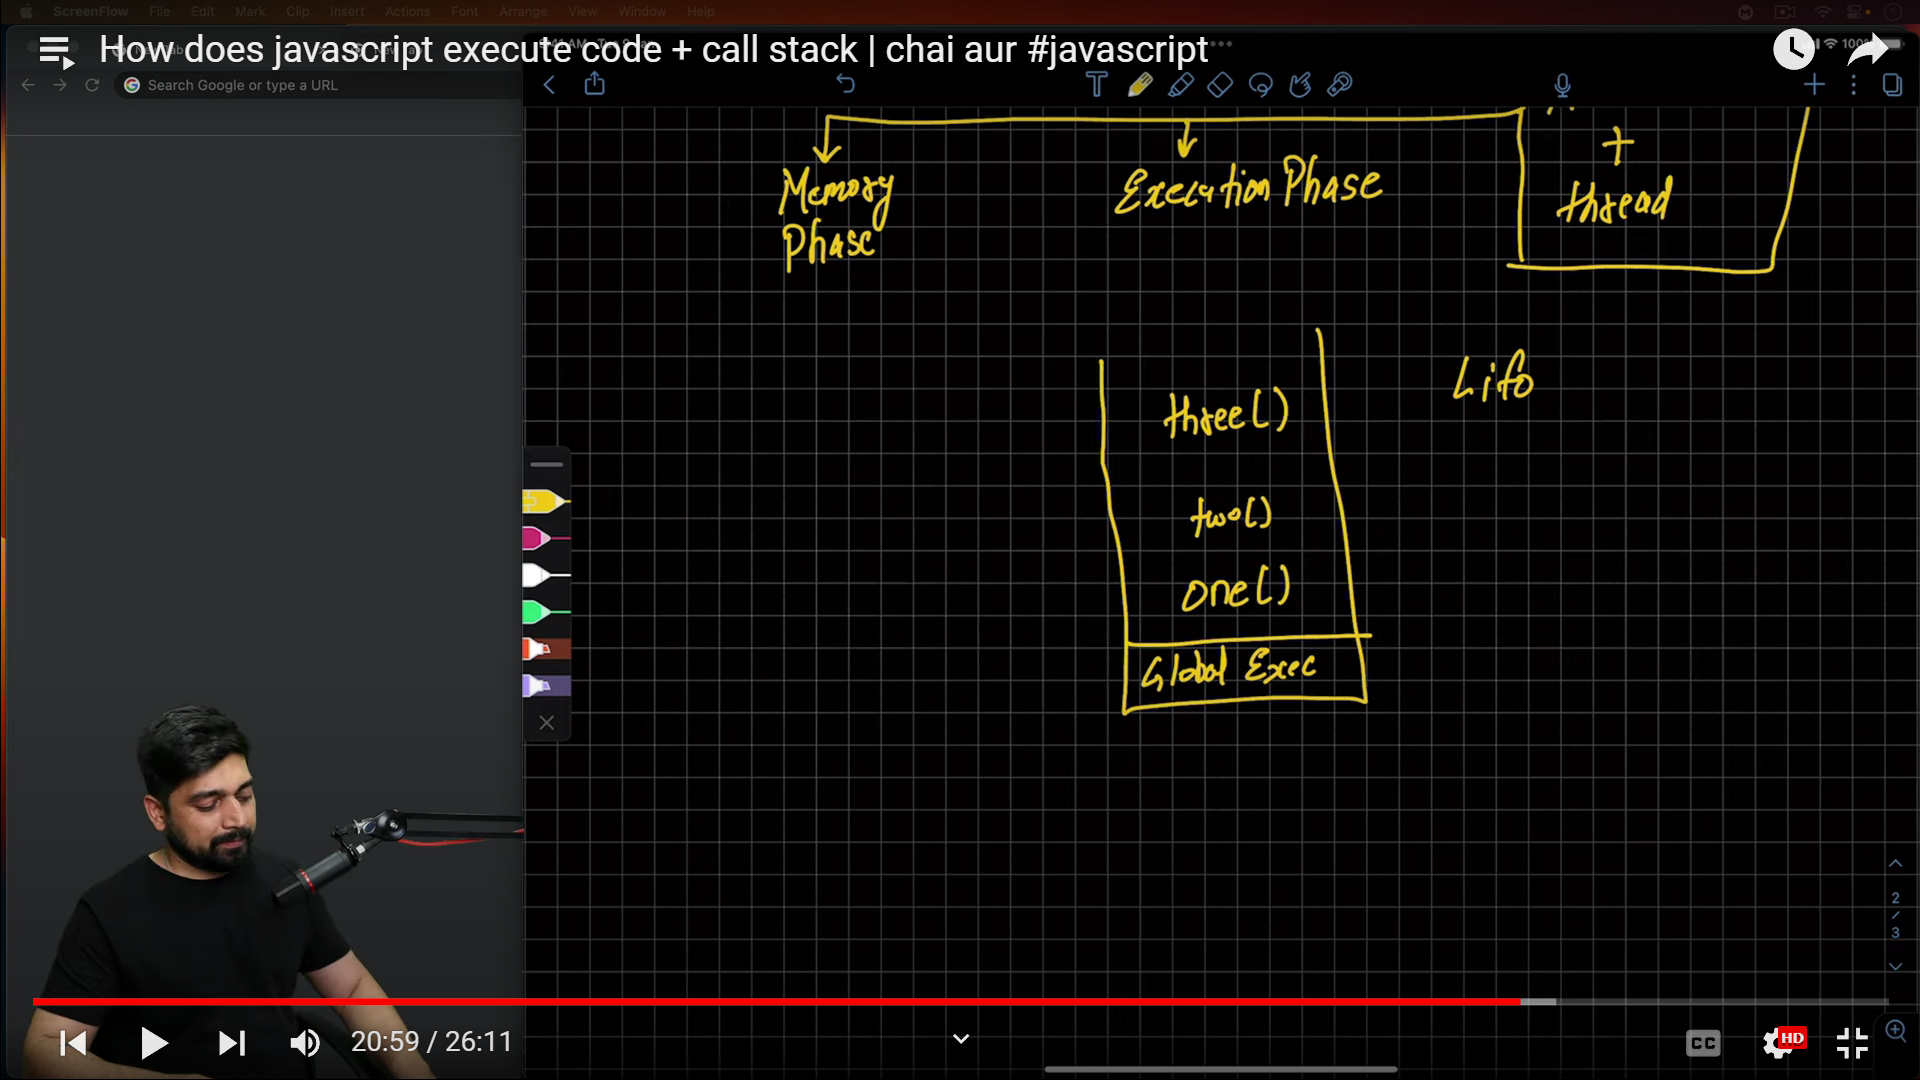 ScreenFlow File Edit Mark Clip Insert Actions Font Arrange View Window Help
How does javascript execute code + call stack | chai aur #javascript
100%
Search Google or type a URL
Memory
Phase
Execution Phase
+
thread
three()
two()
one()
Global Exec
Lifo
2
/
3
20:59 / 26:11
CC
HD